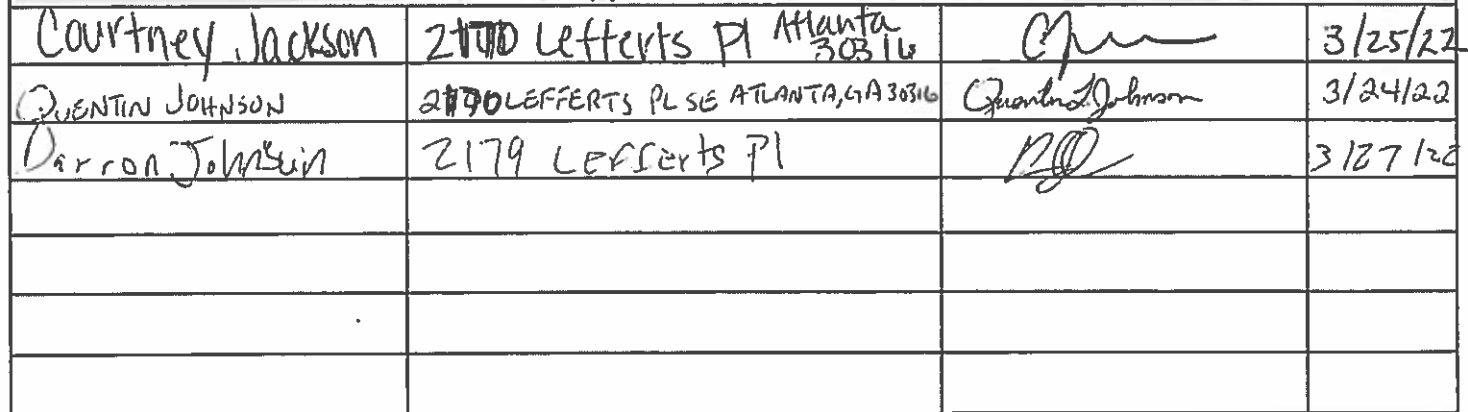 Courtney Jackson 2170 Lefferts Pl Atlanta 30316 3/25/22
QUENTIN JOHNSON 2170 LEFFERTS PL SE ATLANTA, GA 30316 Quentin L Johnson 3/24/22
Darron Johnson 2179 Lefferts Pl 3/27/22